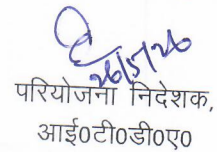 26/5/26
परियोजना निदेशक,
आई0टी0डी0ए0